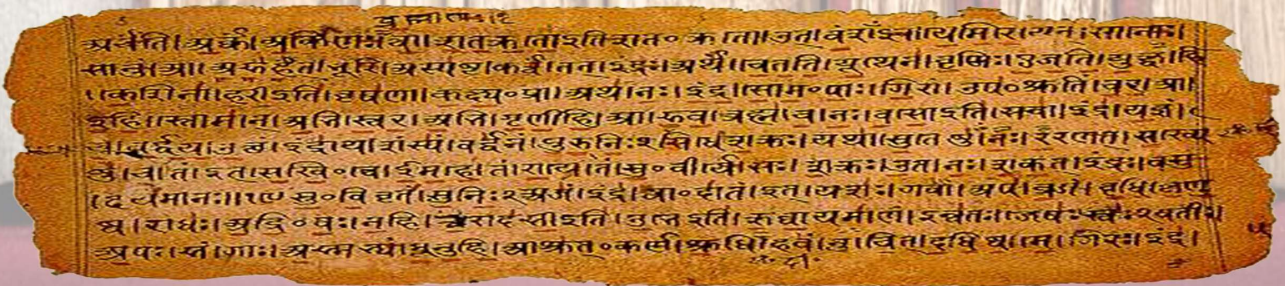 अर्चंति। अर्कं। अर्किणः। ब्रह्माणः। त्वा। शतक्रतो इति शत॰क्रतो। उत्। वंशं॰इव। येमिरे। यत्। सानोः।
सानुं। आ। अरुहत्। भूरि। अस्पष्ट। कर्त्वं। तत्। इंद्रः। अर्थं। चेतति। यूथेन। वृष्णिः। एजति। युक्ष्व। हि
।केशिना। हरी इति। वृषणा। कक्ष्य॰प्रा। अथ। नः। इंद्र। सोम॰पाः। गिरां। उप॰श्रुतिं। चर। आ।
इहि। स्तोमान्। अभि। स्वर। अभि। गृणीहि। आ। रुव। ब्रह्म। च। नः। वसो इति। सचा। इंद्र। यज्ञं।
च। वर्धय। उक्थं। इंद्राय। शंस्यं। वर्धनं। पुरुनिः॰सिधे। शक्रः। यथा। सुतेषु। नः। ररणत्। सख्ये
षु। च। तं। इत्। सखि॰त्वे। ईमहे। तं। राये। तं। सु॰वीर्ये। सः। शक्रः। उत। नः। शकत्। इंद्रः। वसु
।दयमानः॥१९ सु॰विवृतं। सुनिः॰अजं। इंद्र। त्वा॰दातं। इत्। यशः। गवां। अप। व्रजं। वृधि। कृणु
ष्व। राधः। अद्रि॰वः। नहि। त्वा। रोदसी इति। उभे इति। ऋघायमाणं। इन्वतः। जेषः। स्वः॰वतीः।
अपः। सं। गाः। अस्मभ्यं। धूनुहि। आश्रुत्॰कर्ण। श्रुधि। हवं। नु। चित्। दधिष्व। मे। गिरः। इंद्र।